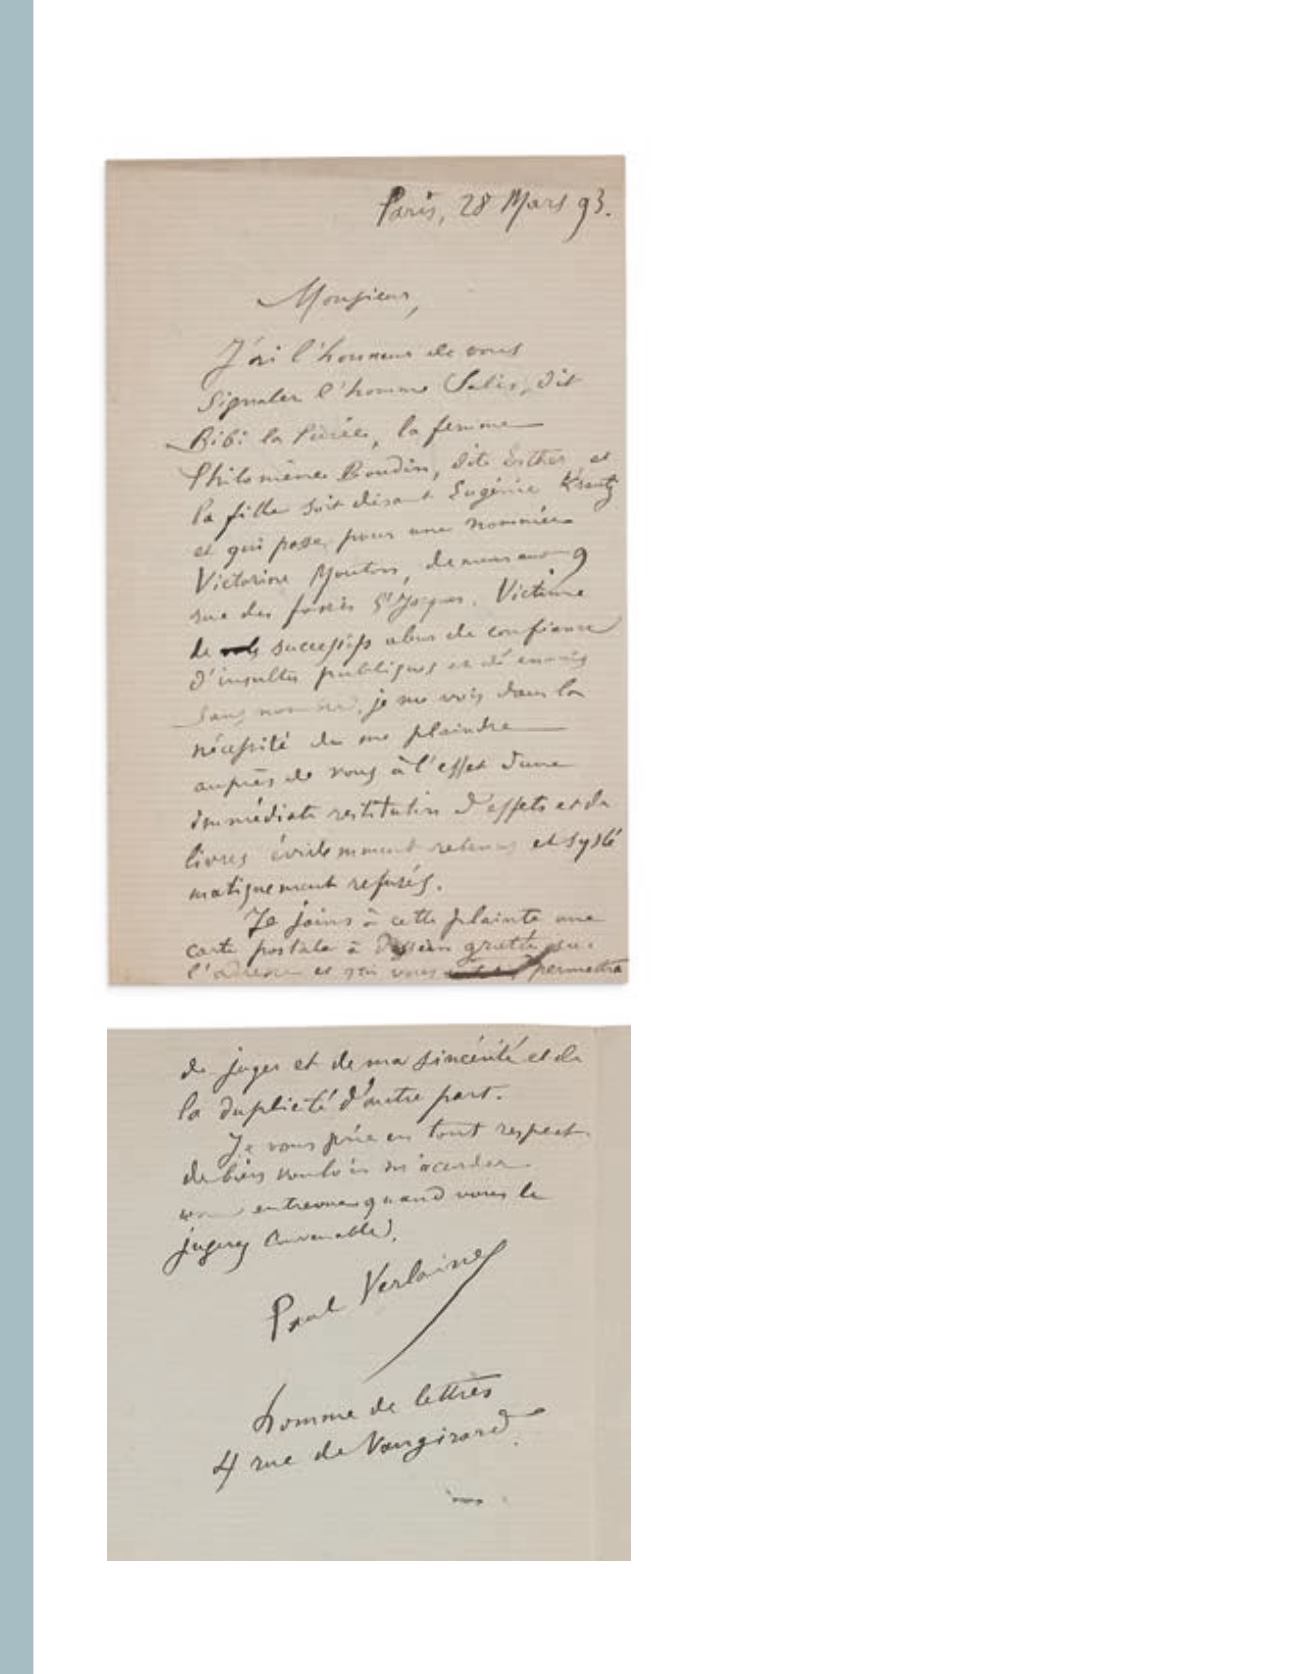 Paris, 28 Mars 93.
Monsieur,
J'ai l'honneur de vous
signaler l'homme Salis, dit
Bibi la Purée, la femme
Philomène Boudin, dite Esther et
la fille soit disant Eugénie Krantz
et qui passe pour une nommée
Victorine Mouton, demeurant 9
rue des fossés St Jacques. Victime
de vols successifs abus de confiance
d'insultes publiques et d'ennuis
sans nombre, je me vois dans la
nécessité de me plaindre
auprès de vous à l'effet d'une
immédiate restitution d'effets et de
livres évidemment retenus et systé
matiquement refusés.
Je joins à cette plainte une
carte postale à dessein grattée sur
l'adresse et qui vous permettra
de juger et de ma sincérité et de
la duplicité d'autre part.
Je vous prie en tout respect
de bien vouloir m'accorder
une entrevue quand vous le
jugerez convenable.
Paul Verlaine
homme de lettres
4 rue de Vaugirard.